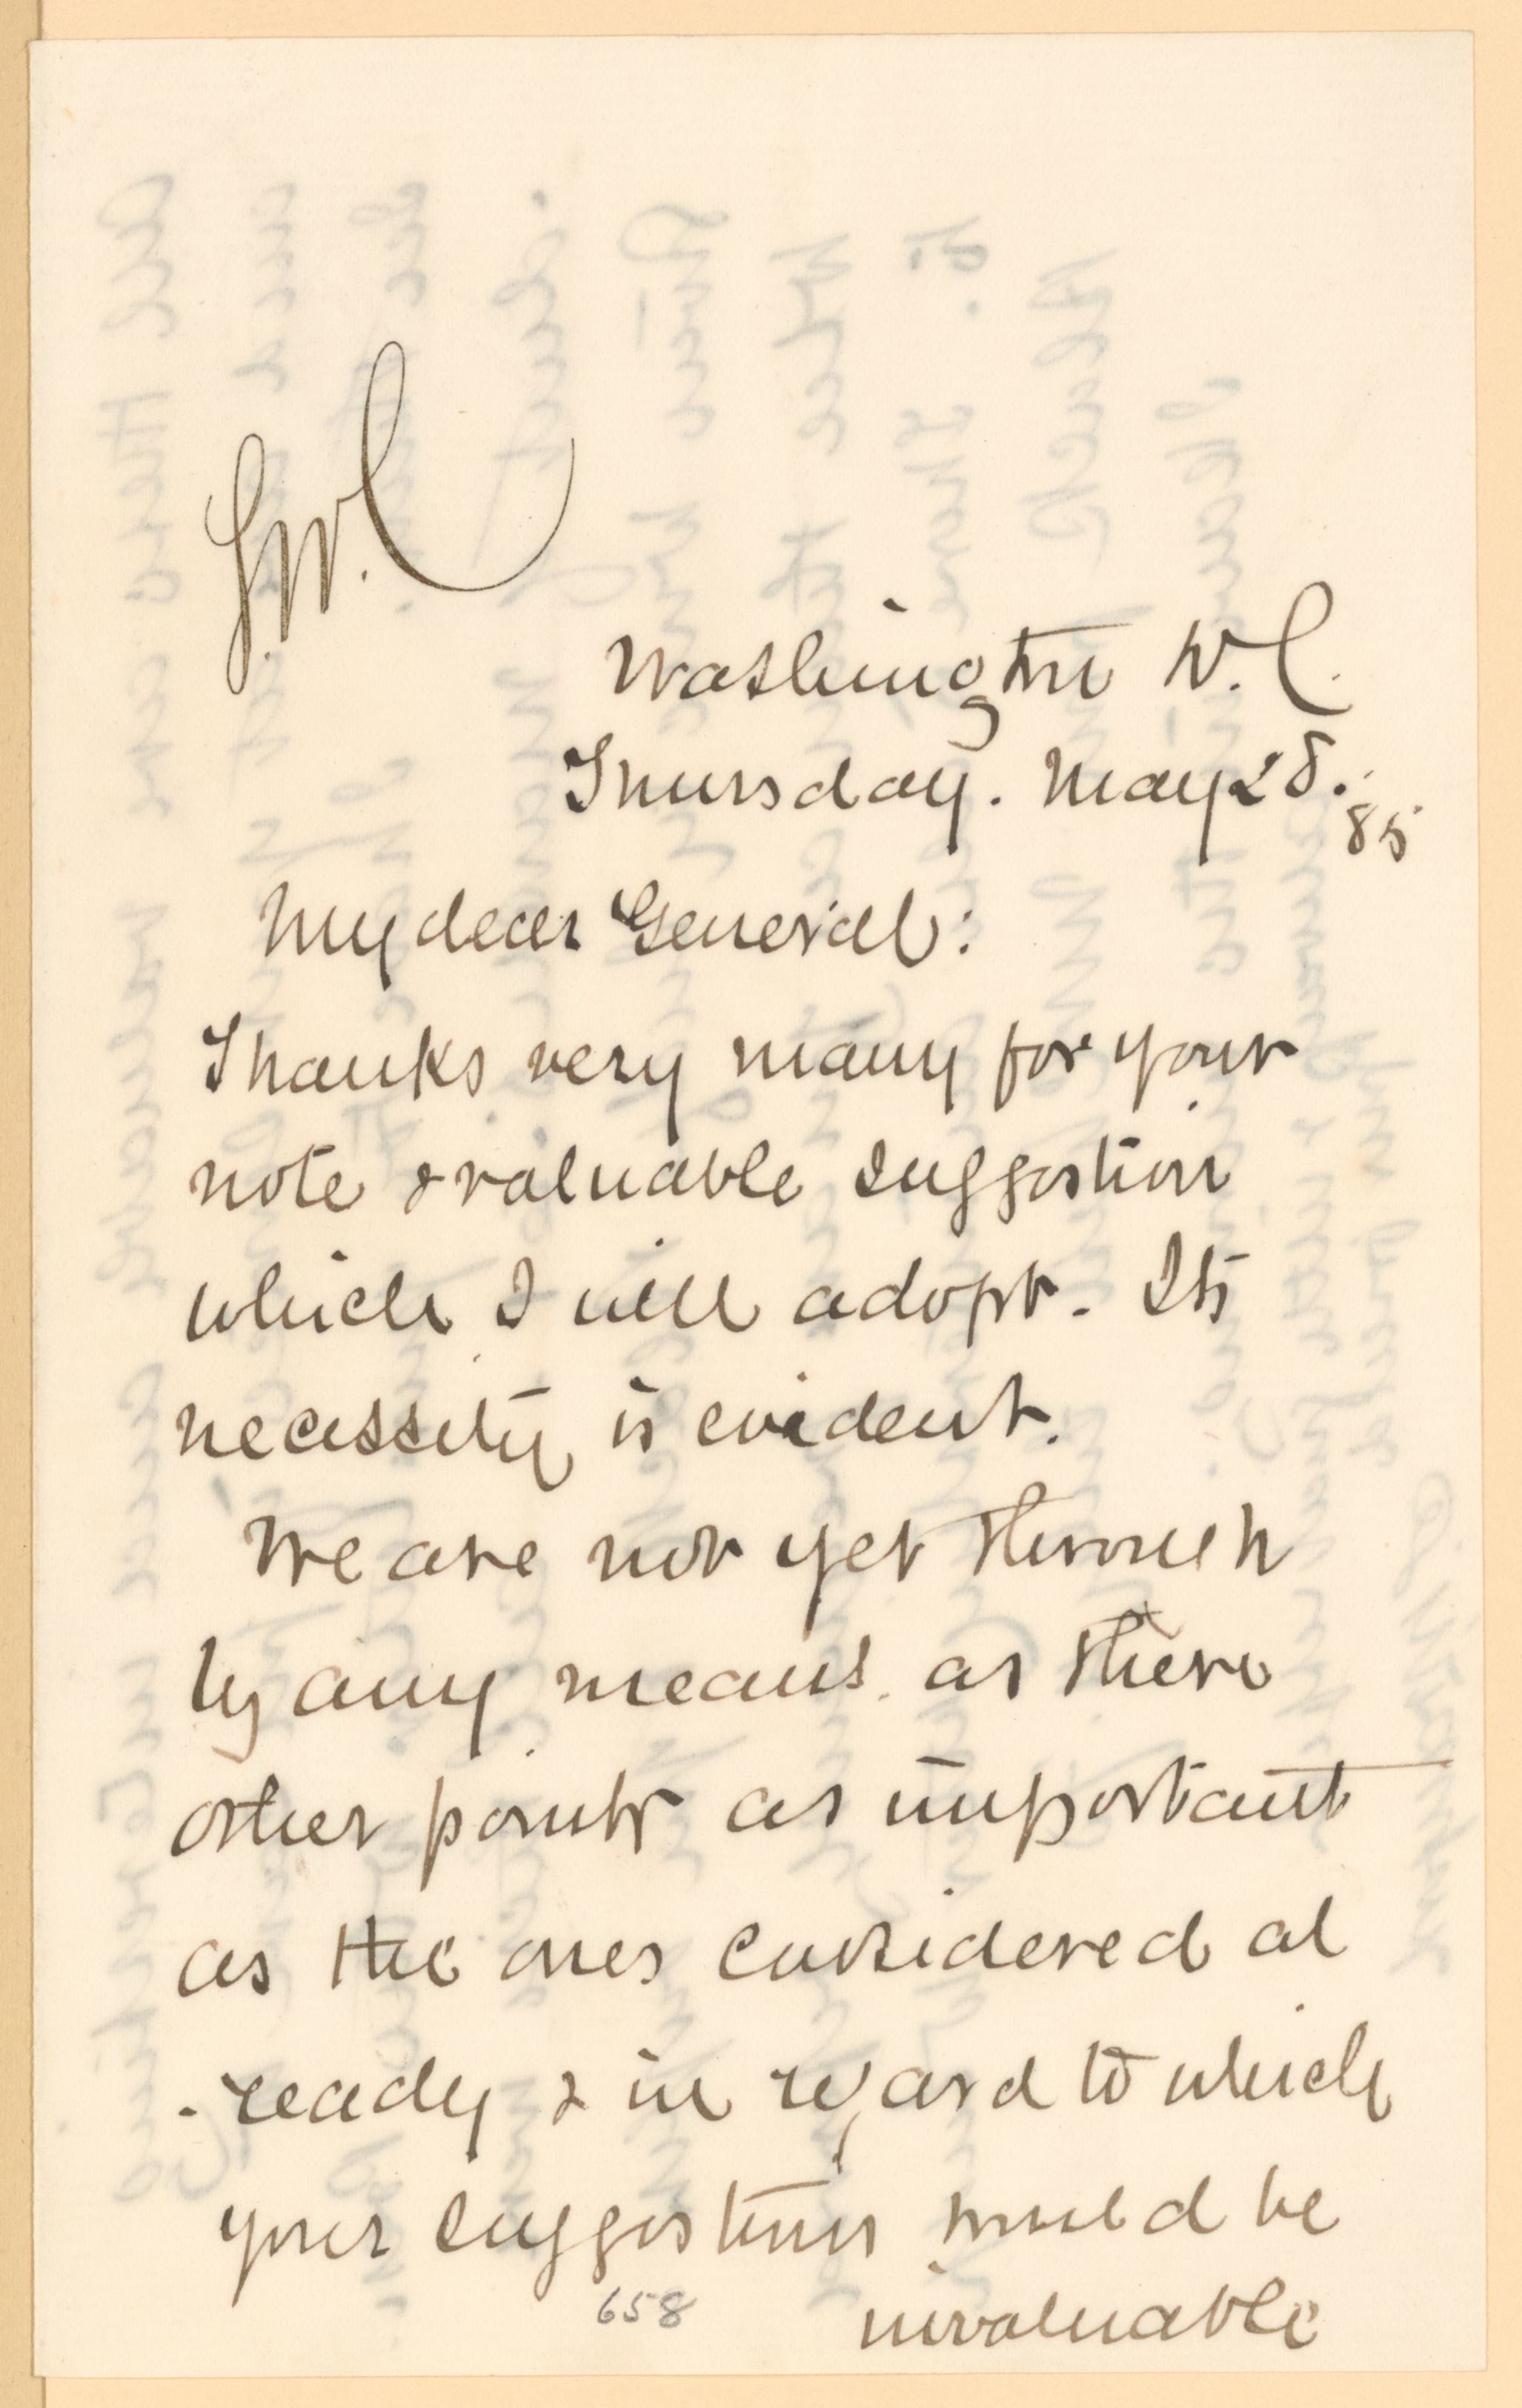 G.W.C
Washington D.C.
Thursday. May 28.
85
My dear General:
Thanks very many for your
note & valuable suggestion
which I will adopt. Its
necessity is evident.
We are not yet through
by any means as there
other points as important
as the ones considered al
-ready & in regard to which
your suggestions would be
invaluable
658